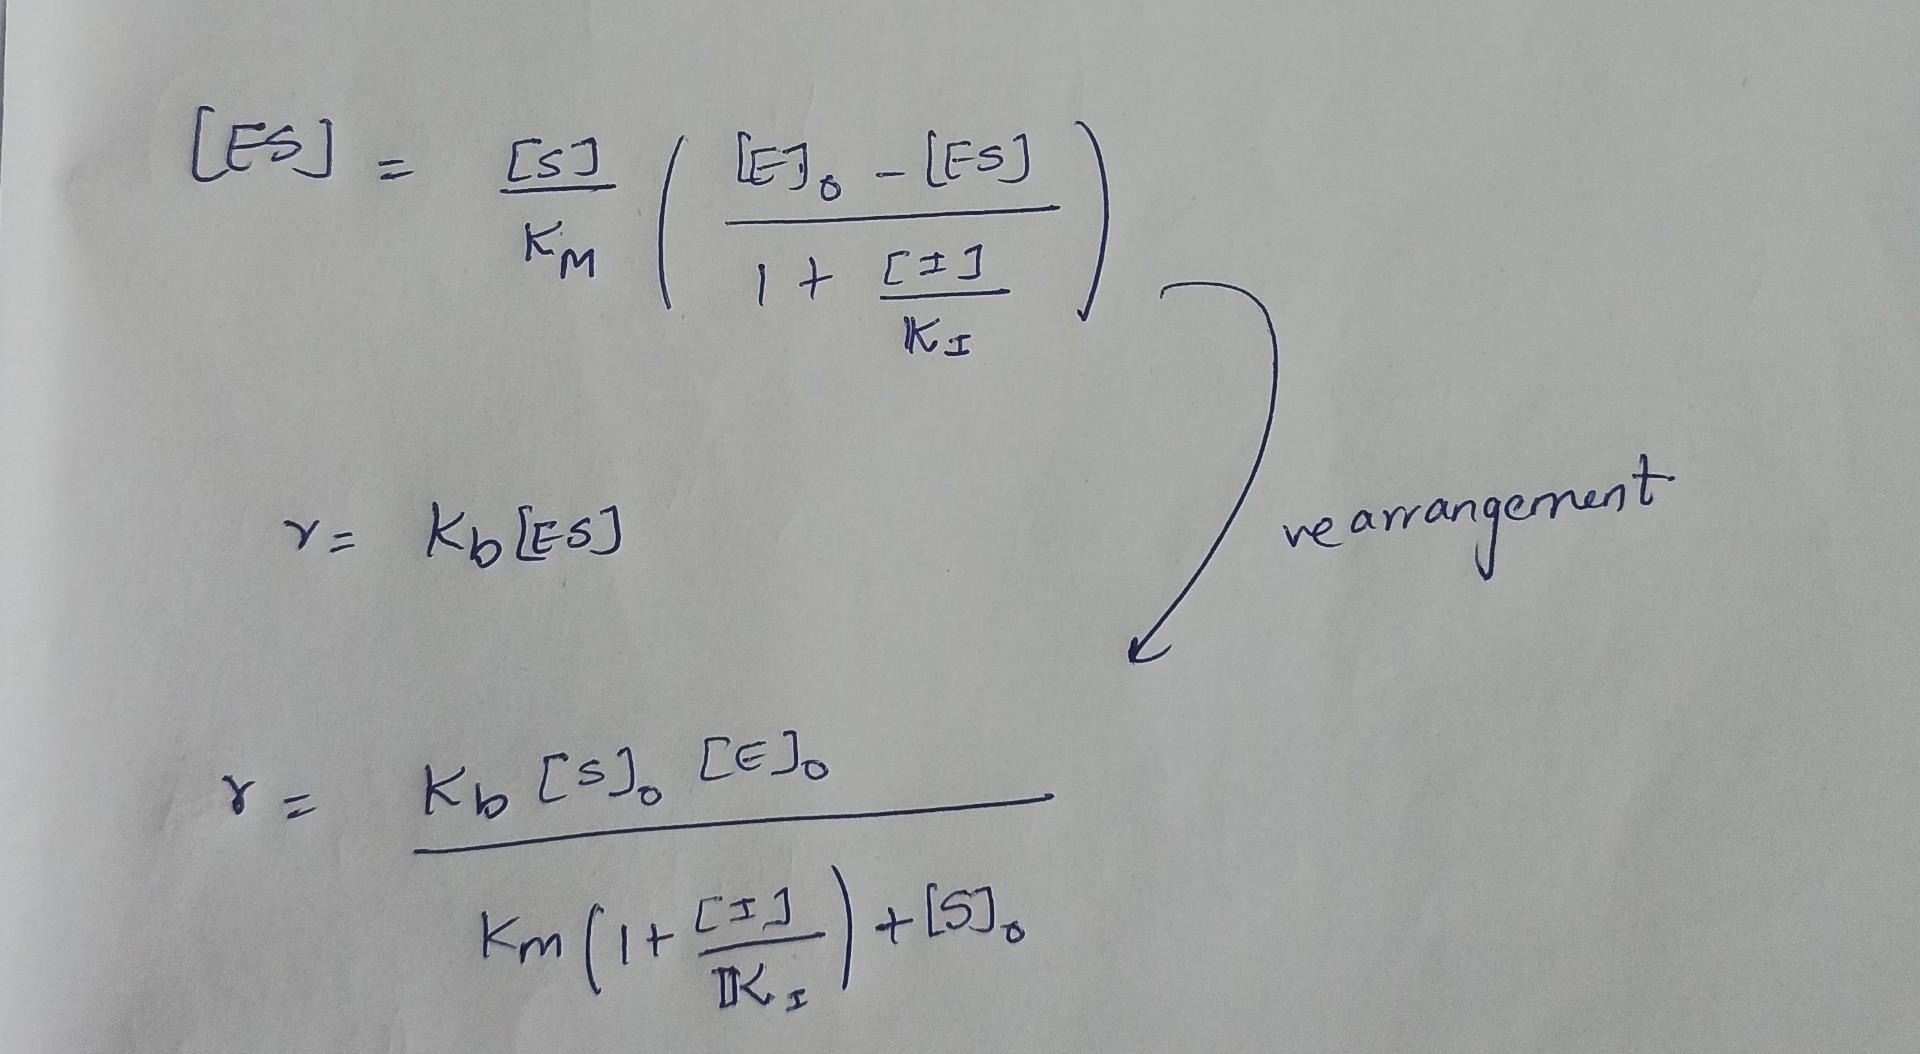 [ES] = [S]/K_M ( ([E]₀ - [ES]) / (1 + [I]/K_I) )
r = K_b[ES]
rearrangement
r = K_b [S]₀ [E]₀ / (K_m (1 + [I]/K_I) + [S]₀)